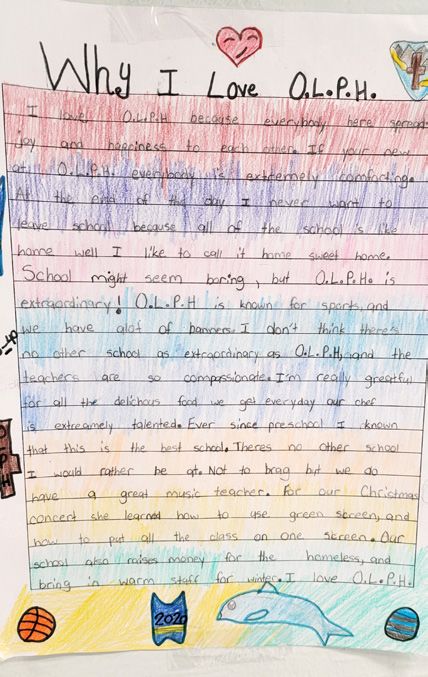 Why I Love O.L.P.H.
I love O.L.P.H because everybody here spreads
joy and happiness to each other. If your new
at O.L.P.H. everybody is extremely comforting.
At the end of the day I never want to
leave school because all of the school is like
home well I like to call it home sweet home.
School might seem boring, but O.L.P.H. is
extraordinary! O.L.P.H is known for sports, and
we have alot of banners. I don't think there's
no other school as extraordinary as O.L.P.H, and the
teachers are so compassionate. I'm really greatful
for all the delichous food we get everyday our chef
is extreamely talented. Ever since preschool I known
that this is the best school. Theres no other school
I would rather be at. Not to brag but we do
have a great music teacher. For our Christmas
concert she learned how to use green screen, and
how to put all the class on one screen. Our
school also raises money for the homeless, and
bring in warm staff for winter. I love O.L.P.H.
2020